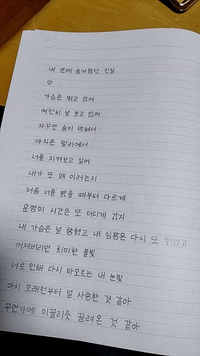 내 안에 숨겨왔던 진실
♡
가슴은 뛰고 있어
여전히 널 보고 있어
자꾸만 숨이 막혀서
아직은 멀리에서
너를 지켜보고 싶어
내가 또 왜 이러는지
처음 너를 봤을 때부터 다르게
운명의 시간은 또 더디게 갔지
내 가슴은 널 향했고 내 심장은 다시 또 뛰었고
꺼져버리던 희미한 불빛
너로 인해 다시 타오르는 내 눈빛
마치 오래전부터 널 사랑한 것 같아
무언가에 이끌리듯 끌려온 것 같아